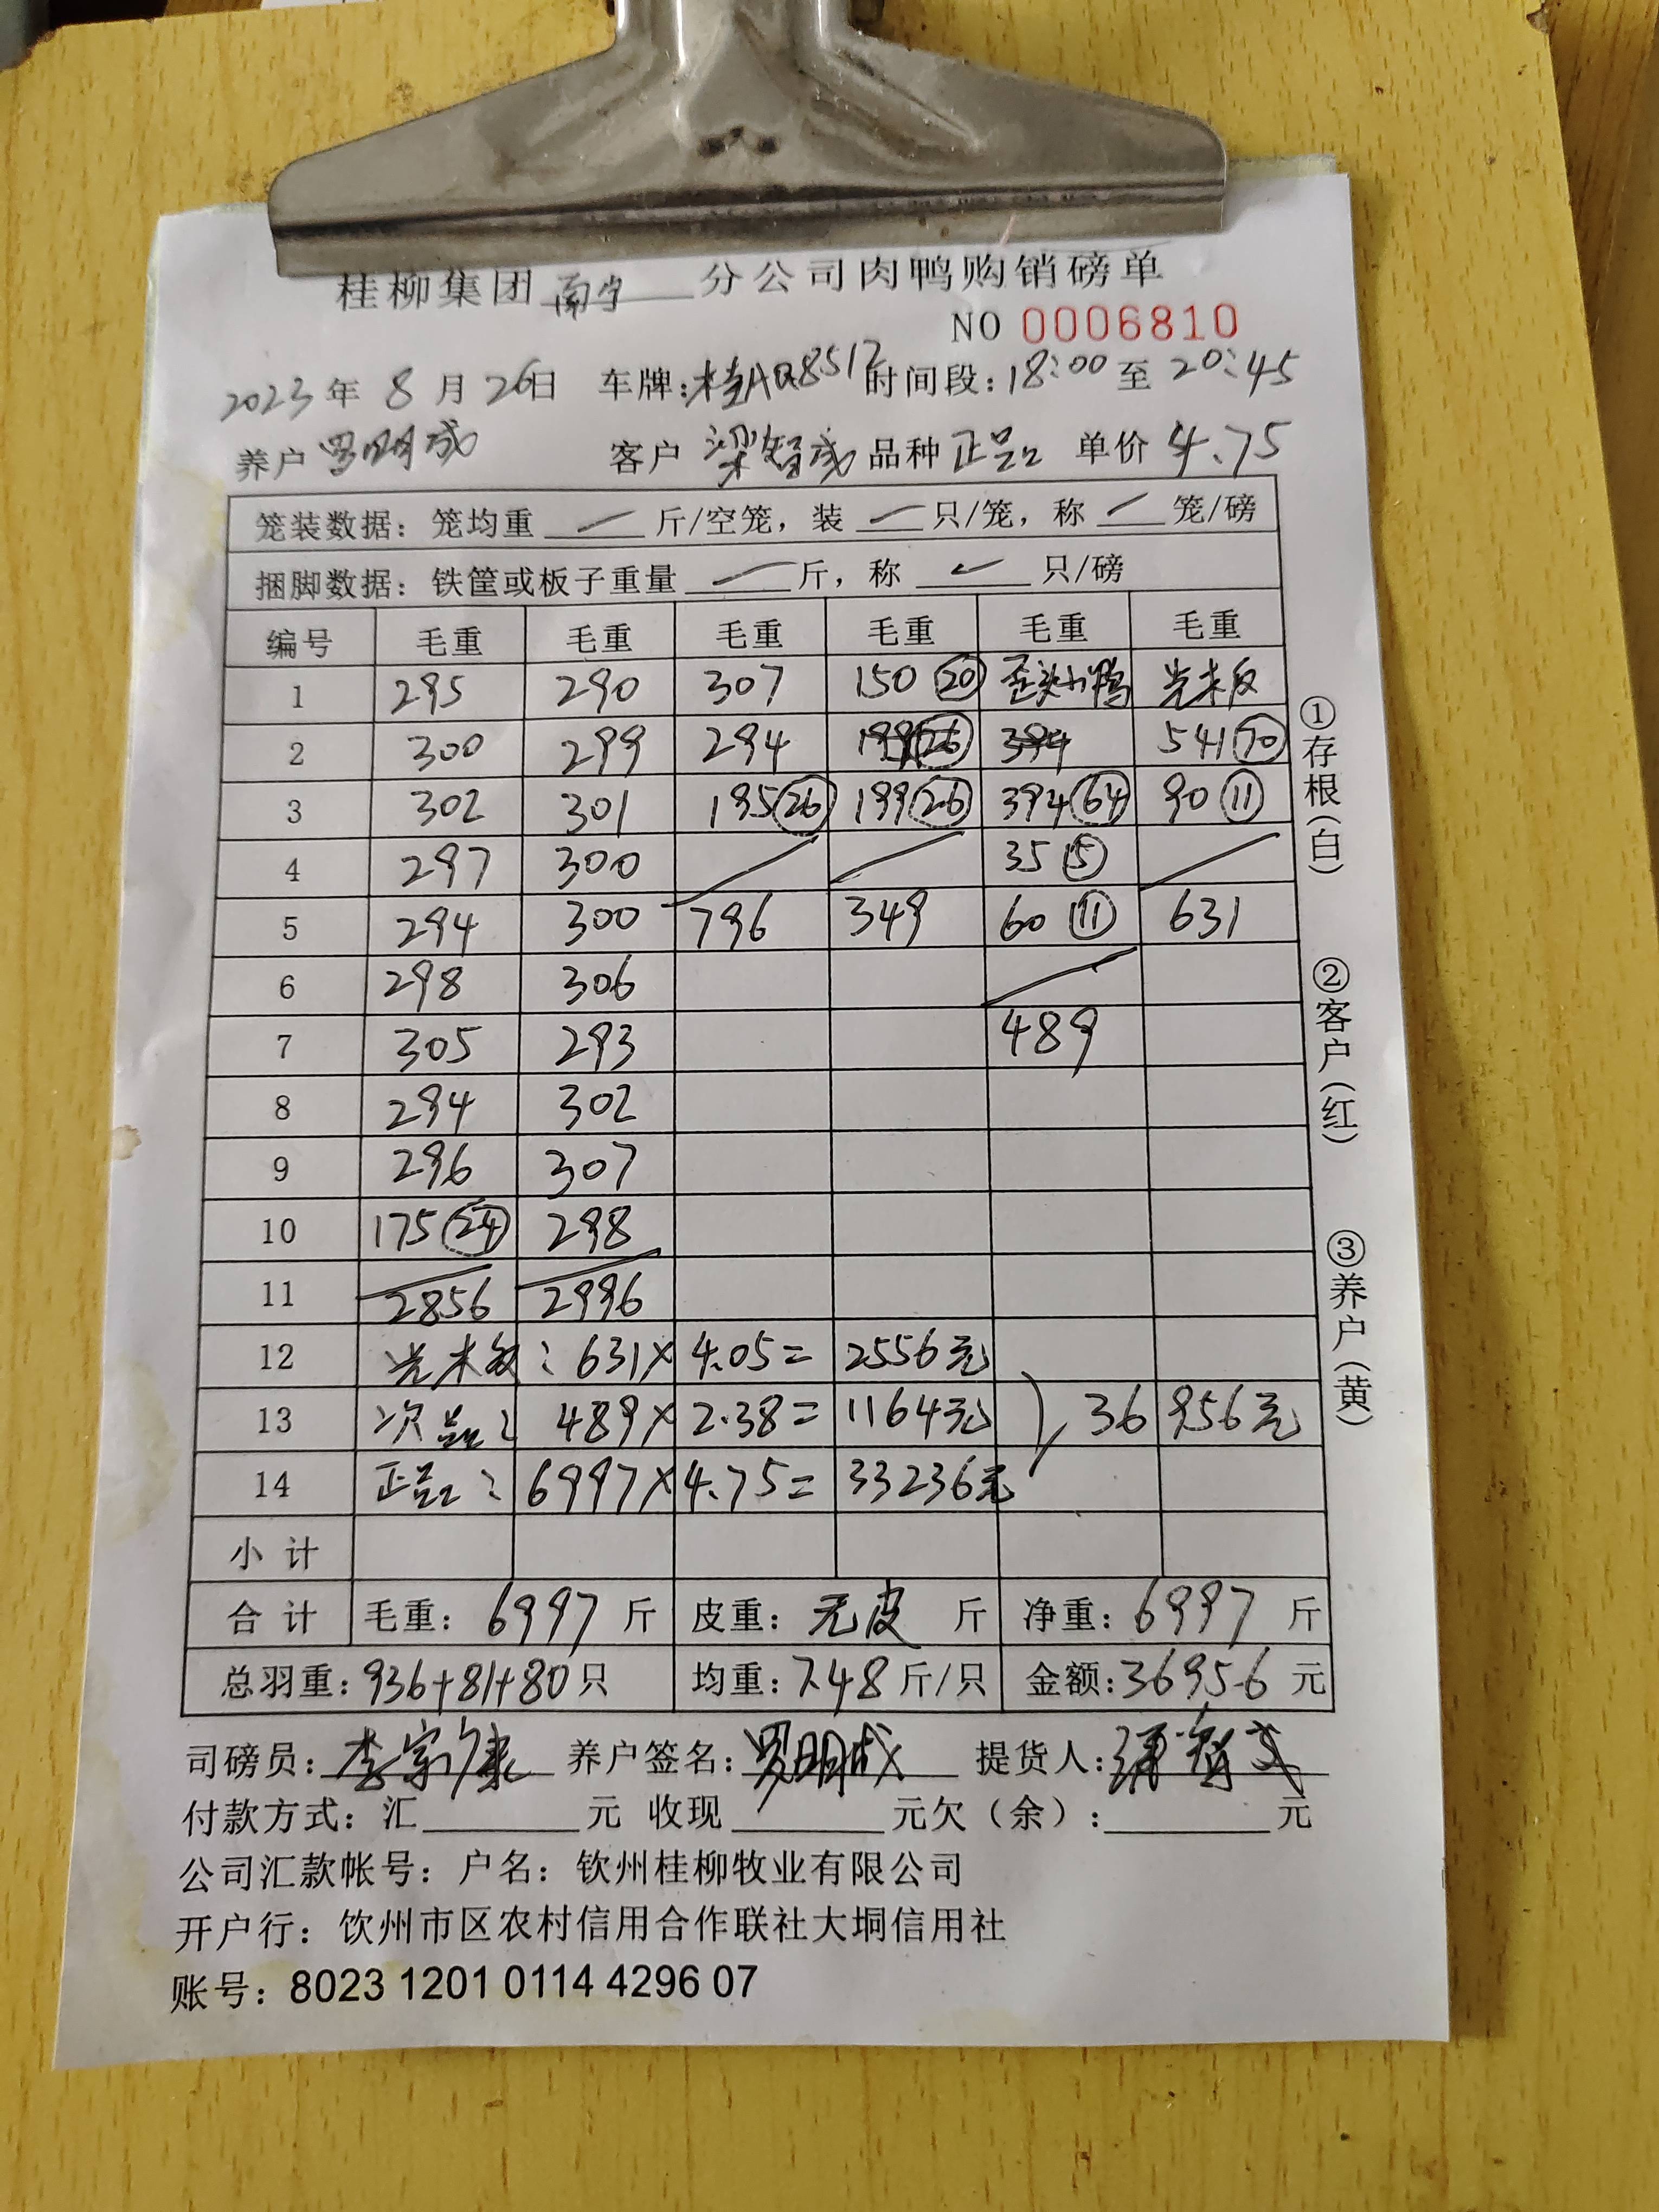 桂柳集团 南宁 分公司肉鸭购销磅单
NO 0006810
2023年 8 月 26日 车牌:桂AQ8517 时间段:18:00 至 20:45
养户 罗明成 客户 梁智成 品种 正品 单价 4.75
笼装数据: 笼均重 斤/空笼, 装 只/笼, 称 笼/磅
捆脚数据: 铁筐或板子重量 斤, 称 只/磅
编号 毛重 毛重 毛重 毛重 毛重 毛重
1 295 290 307 150 20 歪头小鸭 光木反
2 300 299 294 199 26 394 541 70
3 302 301 195 26 199 26 394 64 90 11
4 297 300 35 5
5 294 300 796 349 60 11 631
6 298 306
7 305 293 489
8 294 302
9 296 307
10 175 24 298
11 2856 2996
12 光木板: 631×4.05=2556元
13 次品: 489×2.38=1164元 36956元
14 正品: 6997×4.75=33236元
小 计
合 计 毛重: 6997 斤 皮重: 无皮 斤 净重: 6997 斤
总羽重: 936+81+80只 均重: 7.48 斤/只 金额: 36956 元
司磅员: 李宗康 养户签名: 罗明成 提货人:
付款方式: 汇 元 收现 元欠(余): 元
公司汇款帐号: 户名: 钦州桂柳牧业有限公司
开户行: 钦州市区农村信用合作联社大垌信用社
账号: 8023 1201 0114 4296 07
①存根(白)
②客户(红)
③养户(黄)